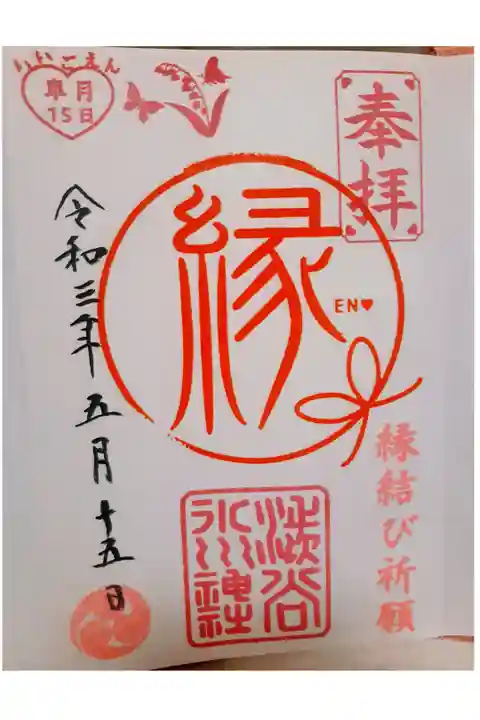 奉拝
縁
EN♥
縁結び祈願
澁谷
氷川神社
いいごえん
皐月
15日
令和三年五月十五日